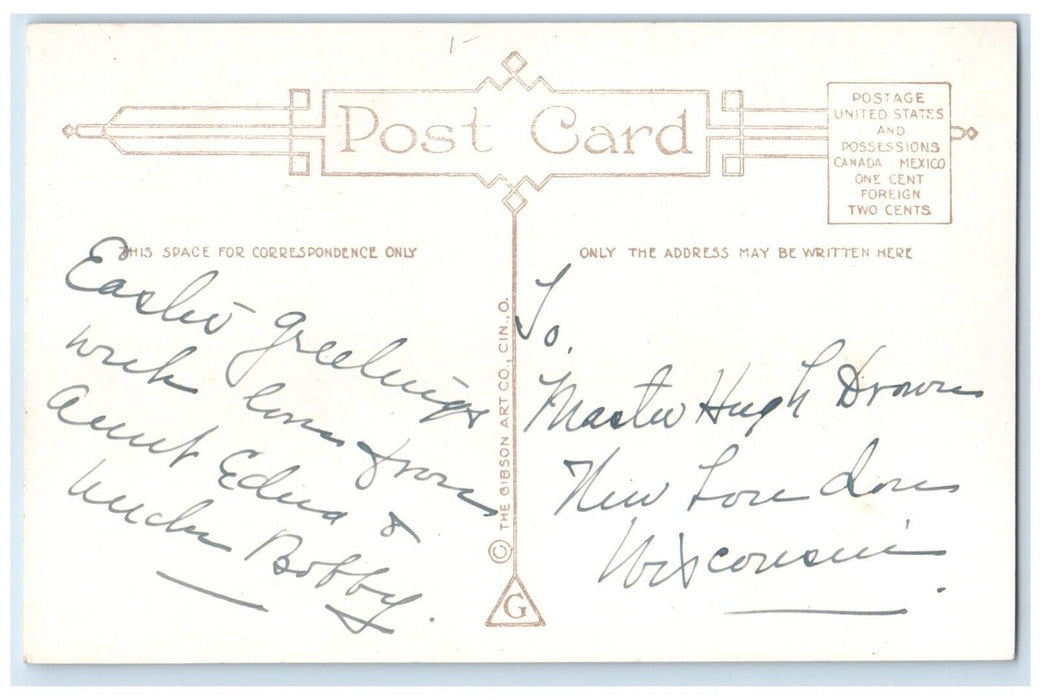 1-
Post Card
POSTAGE
UNITED STATES
AND
POSSESSIONS
CANADA MEXICO
ONE CENT
FOREIGN
TWO CENTS
THIS SPACE FOR CORRESPONDENCE ONLY
Easter Greetings
with love from
Aunt Edna &
Uncle Bobby.
© THE GIBSON ART CO., CIN., O.
G
ONLY THE ADDRESS MAY BE WRITTEN HERE
To.
Master Hugh Drown
New London
Wisconsin.